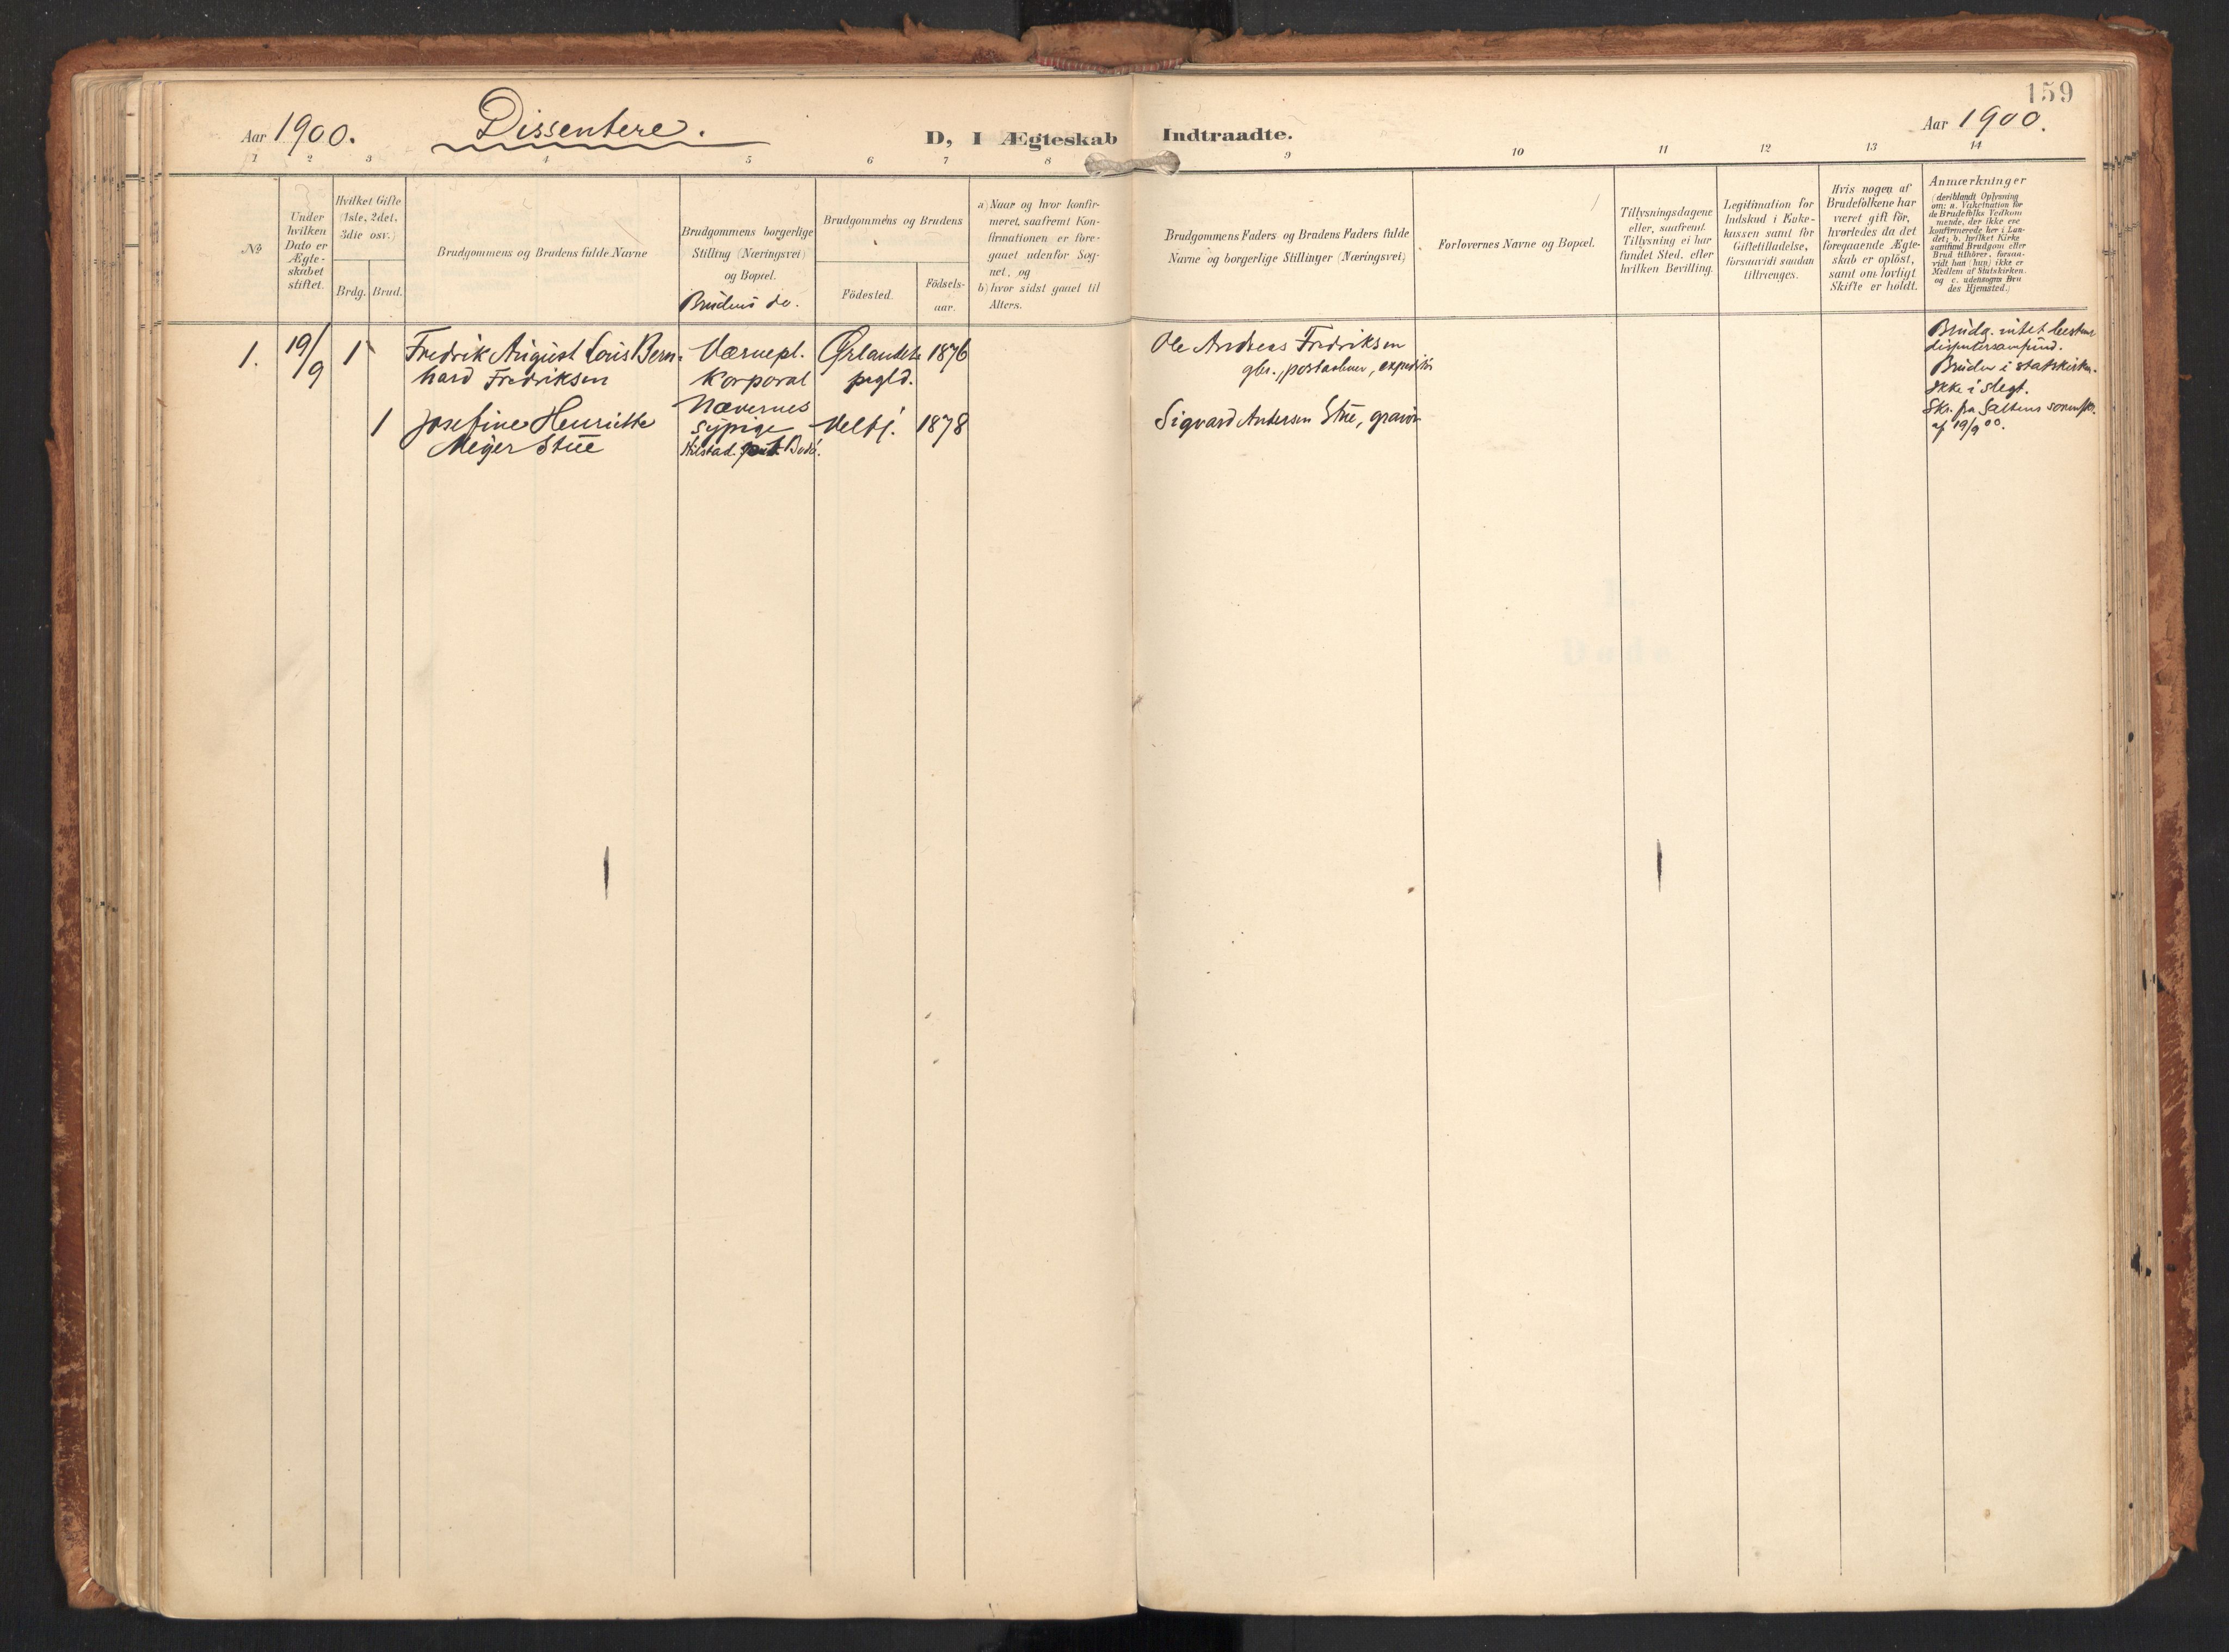 159
Aar 1900. Dissentere. D, I Ægteskab Indtraadte. Aar 1900.
1 2 3 4 5 6 7 8 9 10 11 12 13 14
№
Under
hvilken
Dato er
Ægte-
skabet
stiftet.
Hvilket Gifte
(1ste, 2det,
3die osv.)
Brdg. Brud.
Brudgommens og Brudens fulde Navne
Brudgommens borgerlige
Stilling (Næringsvei)
og Bopæl.
Brudens do.
Brudgommens og Brudens
Födested.
Födsels-
aar.
a) Naar og hvor konfir-
meret, saafremt Kon-
firmationen er fore-
gaaet udenfor Sog-
net, og
b) hvor sidst gaaet til
Alters.
Brudgommens Faders og Brudens Faders fulde
Navne og borgerlige Stillinger (Næringsvei)
Forlovernes Navne og Bopæl.
Tillysningsdagene
eller, saafremt
Tillysning ei har
fundet Sted, efter
hvilken Bevilling.
Legitimation for
Indskud i Enke-
kassen samt for
Giftetilladelse,
forsaavidt saadan
tiltrænges.
Hvis nogen af
Brudefolkene har
været gift för,
hvorledes da det
foregaaende Ægte-
skab er oplöst,
samt om lovligt
Skifte er holdt.
Anmærkninger
(deriblandt Oplysning
om: a. Vakcination for
de Brudefolks Vedkom
mende, der ikke ere
konfirmerede her i Lan-
det; b. hvilket Kirke
samfund Brudgom eller
Brud tilhörer, forsaa-
vidt han (hun) ikke er
Medlem af Statskirken.
og c. udensogns Bru
des Hjemsted.)
1. 19/9 1 Fredrik August Louis Bern-
hard Fredriksen
Værnepl.
Korporal
Nævernes
Ørlandets
prgld.
1876
Ole Andreas Fredriksen
gbr., postaabner, expeditör
1 Josefine Henriette
Meyer Stüe
Sypige
Bodö.
Velfj. 1878
Sigvard Andersen Stüe, gravör
Brudg. intet bestemt
dissentersamfund.
Bruden i statskirken.
Ikke i slegt.
Skr. fra Saltens sorenskr.
af 19/9 00.